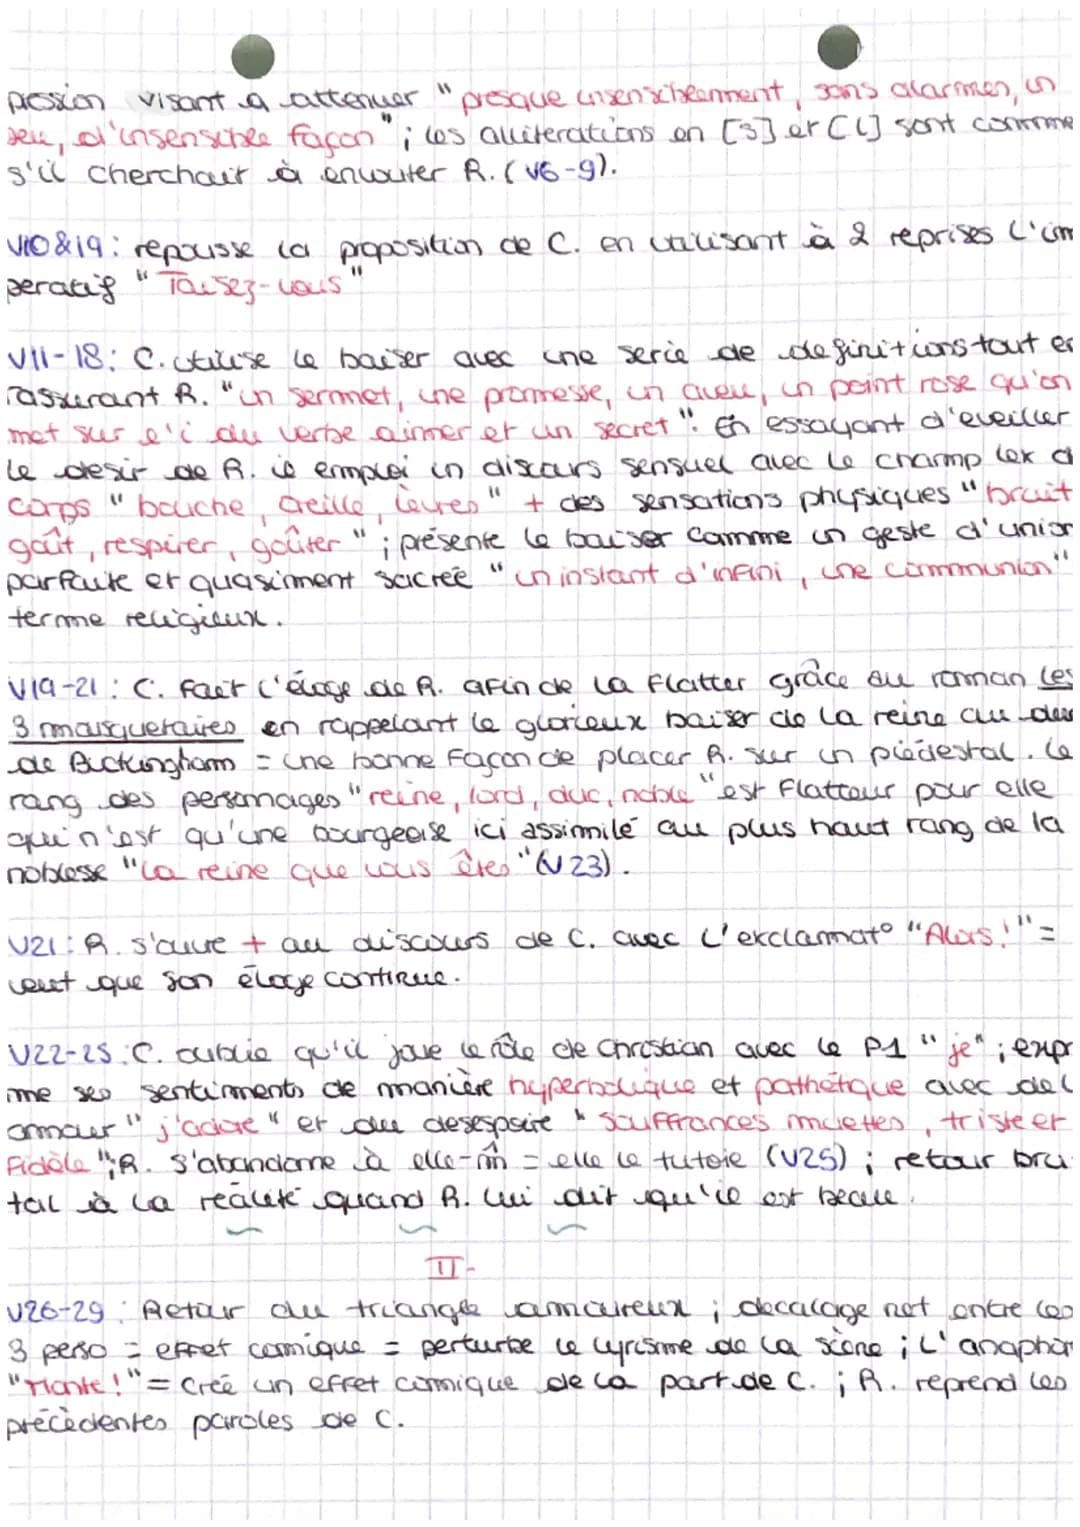 pression visant a attenuer "presque insensiblement, sans alarmes, un
peu, d'insensible façon" ; les alliterations en [S] et [L] sont comme
s'il cherchait à envouter R. (V6-9).
V10&19 : repousse la proposition de C. en utilisant à 2 reprises l'im
peratif "Taisez-vous"
V11-18 : C. utilise le baiser avec une serie de definitions tout en
rassurant R. "un serment, une promesse, un aveu, un point rose qu'on
met sur l'i du verbe aimer et un secret". En essayant d'eveiller
le desir de R. il emploi un discours sensuel avec le champ lex d
corps "bouche, oreille, lèvres" + des sensations physiques "bruit
goût, respirer, goûter" ; présente le baiser comme un geste d'union
parfaite et quasiment sacrée "un instant d'infini, une communion"
terme religieux.
V19-21 : C. fait l'éloge de R. afin de la flatter grâce au roman Les
3 mousquetaires en rappelant le glorieux baiser de la reine au duc
de Buckingham = une bonne façon de placer R. sur un piédestal. Le
rang des personnages "reine, lord, duc, noble" est flatteur pour elle
qui n'est qu'une bourgeoise ici assimilé au plus haut rang de la
noblesse "la reine que vous êtes" (V23).
V21 : R. s'ouvre + au discours de C. avec l'exclamat° "Alors !" =
veut que son éloge continue.
V22-25 : C. oublie qu'il joue le rôle de Christian avec le P1 "je" ; expr
ime ses sentiments de manière hyperbolique et pathétique avec de l
amour "j'adore" et du desespoire "Souffrances muettes, triste et
Fidèle" ; R. s'abandonne à elle-m̂ = elle le tutoie (V25) ; retour bru
tal à la réalité quand R. lui dit qu'il est beau.
II-
V26-29 : Retour du triangle amoureux ; decalage net entre les
3 perso = effet comique = perturbe le lyrisme de la scène ; L'anaphor
"Monte !" = Crée un effet comique de la part de C. ; R. reprend les
précèdentes paroles de C.